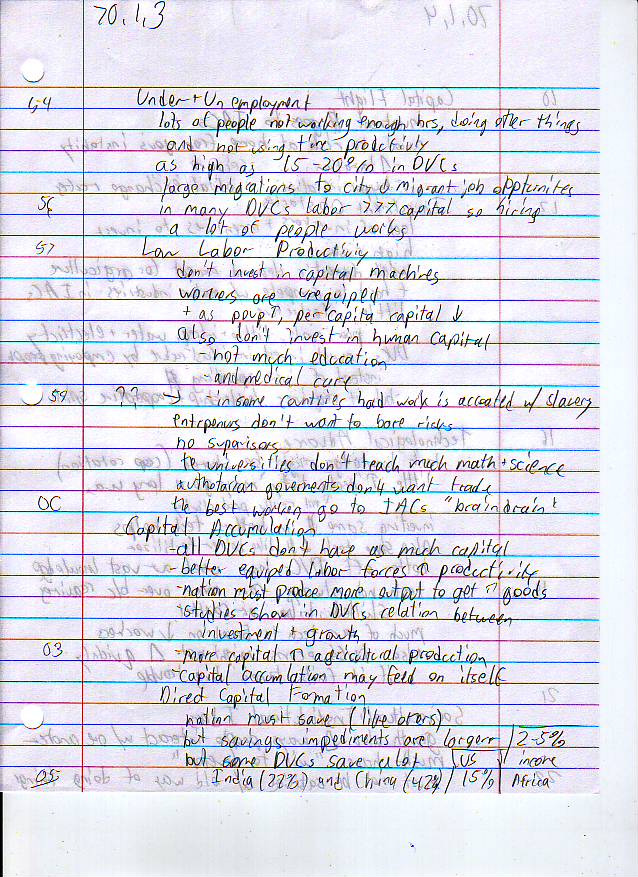 70.1,3
54 Under + Unemployment
lots of people not working enough hrs, doing other things
and not using time productivly
as high as 15-20% in DVCs
large migrations to city ↓ migrant job opptunites
56 in many DVCs labor >>> capital so hiring
a lot of people works
57 Low Labor Productiviy
don't invest in capital machines
workers are unequiped
+ as pop ↑, per capita capital ↓
also don't invest in human capital
- not much education
- and medical care
59 ?? → - in some countries hard work is accoated w/ slavery
entrpenurs don't want to bare risks
no supervisors
te universities don't teach much math + science
authotarian goverments don't want trade
OC the best workers go to IACs "braindrain"
Capital Accumulation
- all DVCs don't have as much capital
- better equiped labor forces ↑ productivity
- nation must produce more output to get ↑ goods
- studies show in DVCs relation between
investment + growth
03 - more capital ↑ agricultural production
- capital accumlation may feed on itself
Direct Capital Formation
nation must save (like others)
but savings impediments are larger 2-5%
but some DVCs save alot US income
05 India (22%) and China (42%) 15% Africa